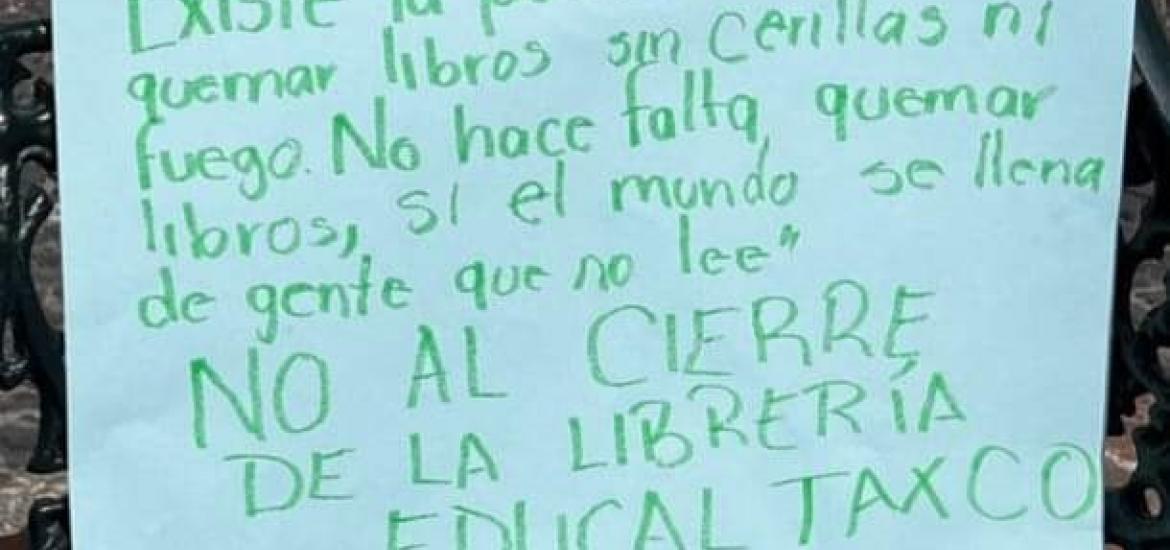 Existe la
quemar libros sin cerillas ni
fuego. No hace falta, quemar
libros, si el mundo se llena
de gente que no lee"
NO AL CIERRE
DE LA LIBRERÍA
EDUCAL TAXCO